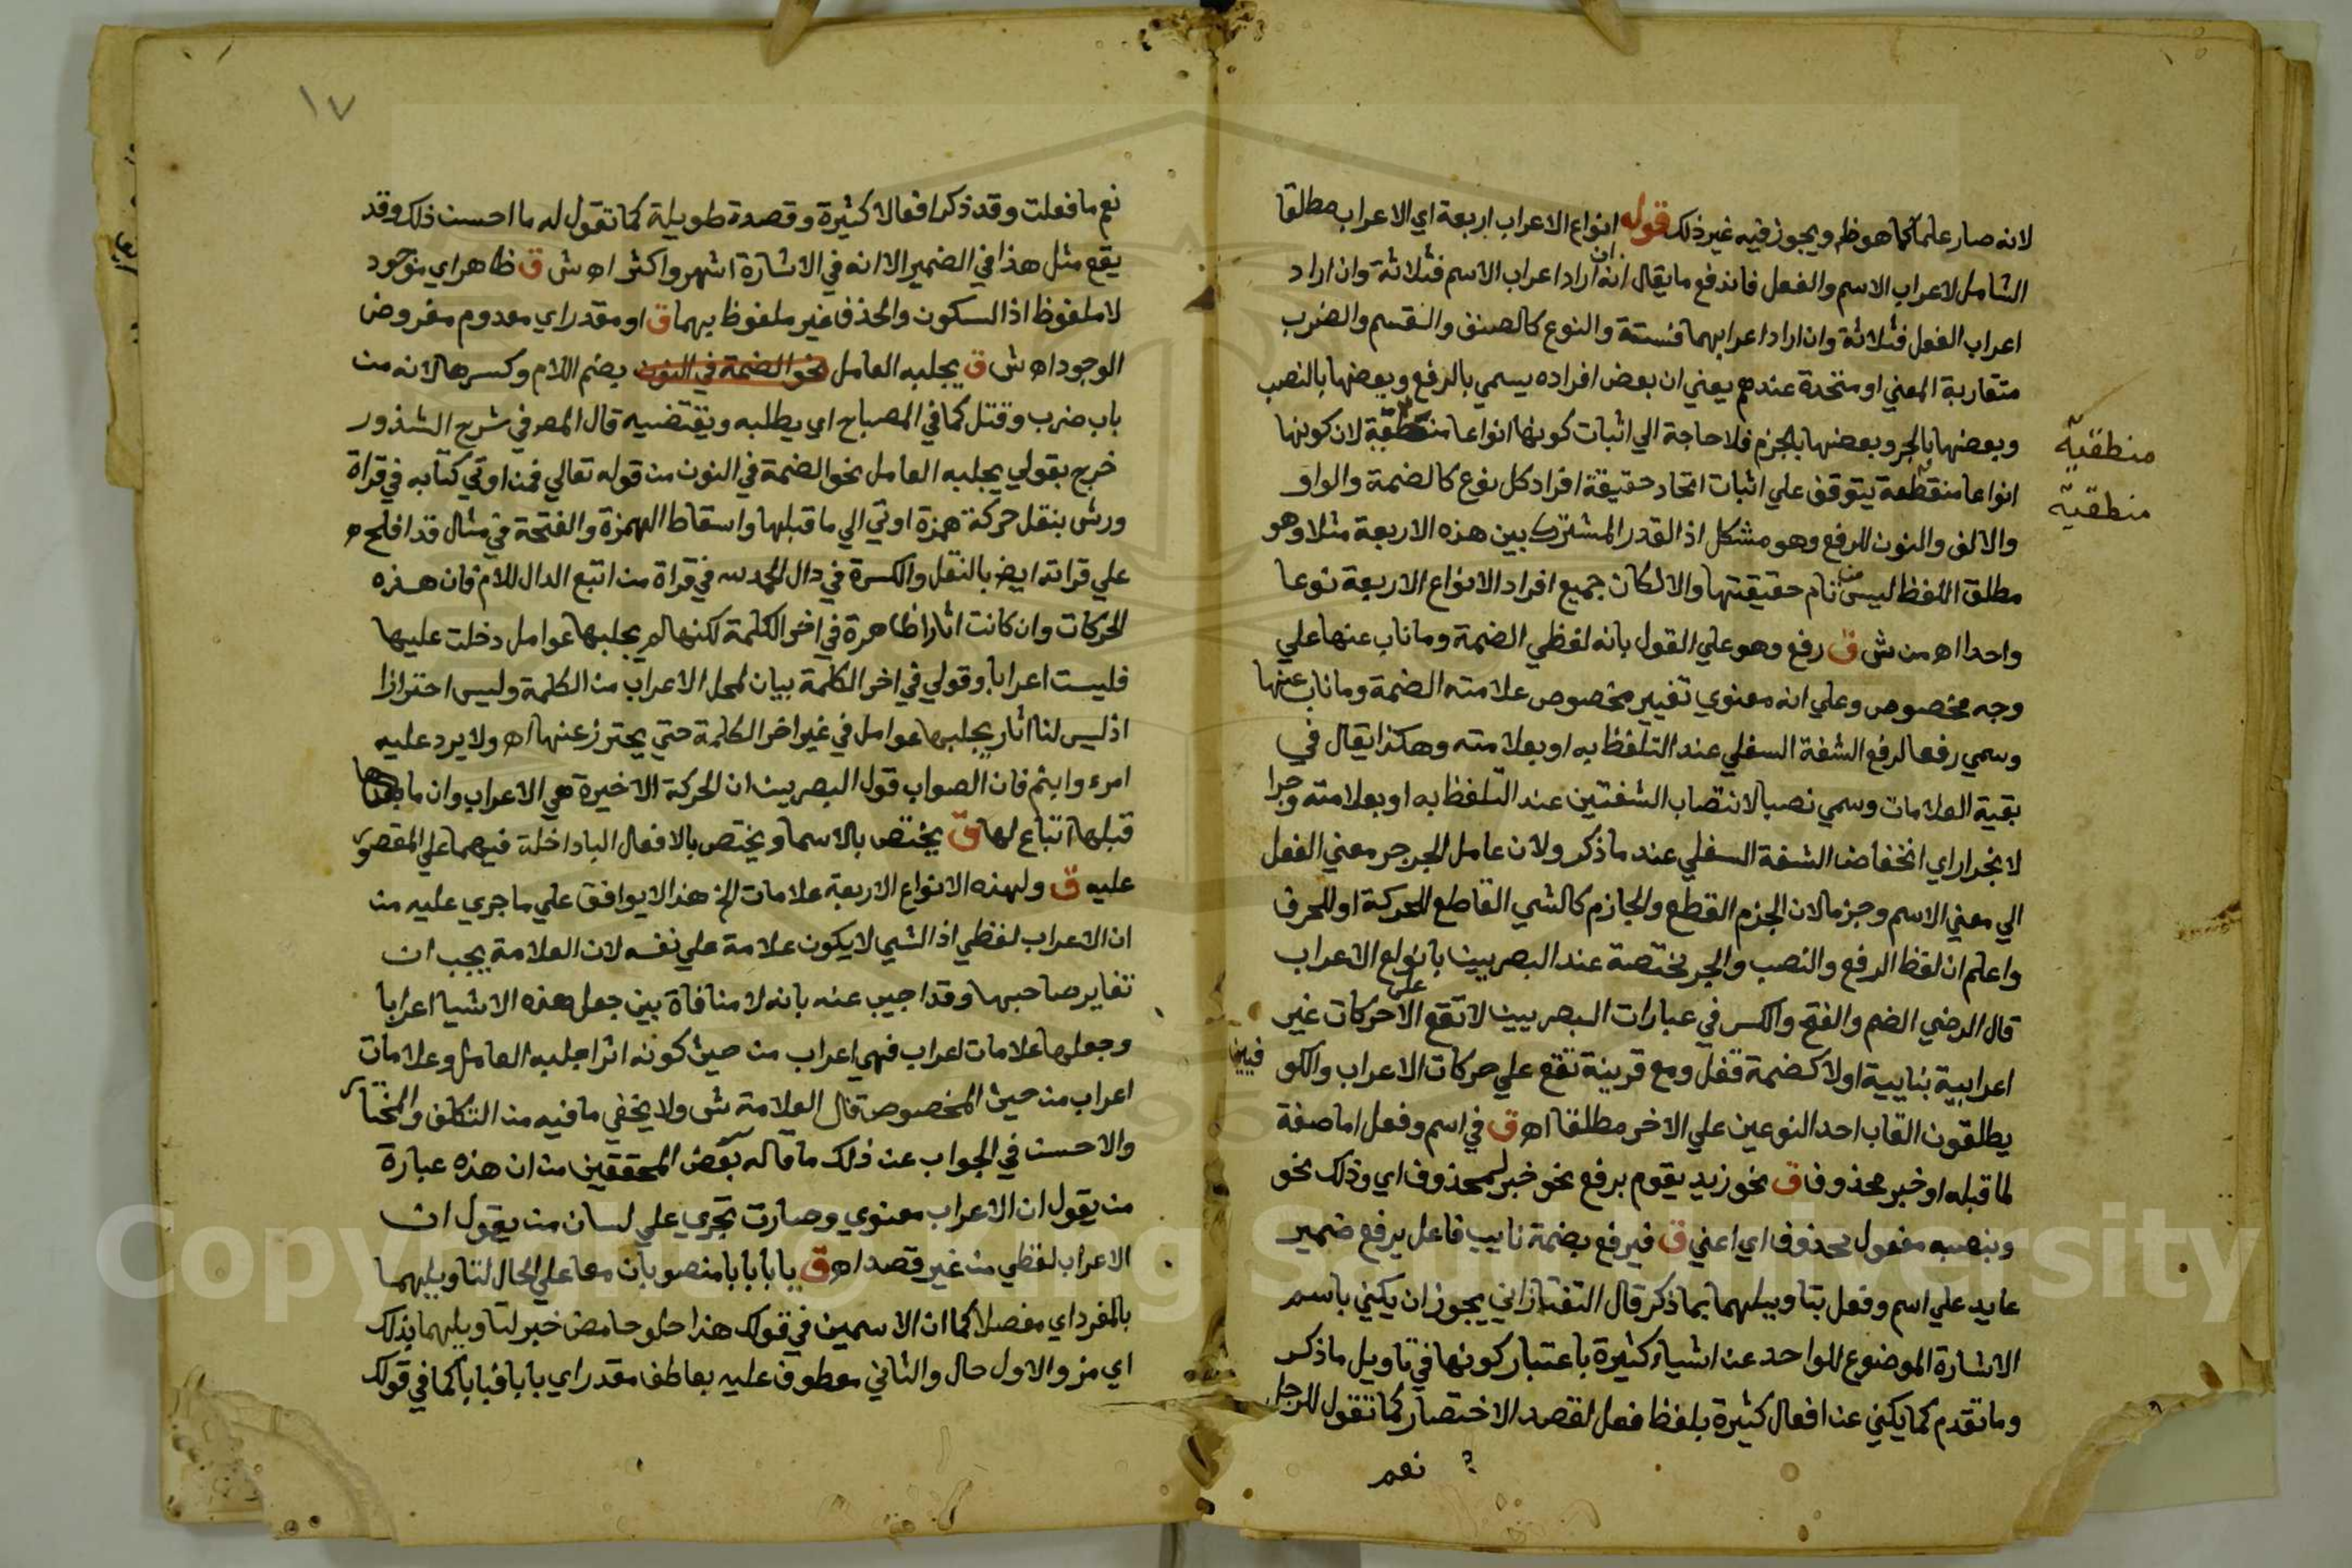 لانه صار علما كما هوظ ويجوز فيه غير ذلك قوله انواع الاعراب اربعة اي الاعراب مطلقا
الشامل لاعراب الاسم والفعل فاندفع ما يقال انه ان اراد اعراب الاسم فثلاثة وان اراد
اعراب الفعل فثلاثة وان اراد اعرابهما فستة والنوع كالصنف والقسم والضرب
متقاربة المعني او متحدة عندهم يعني ان بعض افراده يسمي بالرفع وبعضها بالنصب
وبعضها بالجر وبعضها بالجزم فلا حاجة الي اثبات كونها انواعا منطقية لان كونها
منطقية
انواعا منطقية يتوقف علي اثبات اتحاد حقيقة افراد كل نوع كالضمة والواو
منطقية
والالف والنون للرفع وهو مشكل اذ القدر المشترك بين هذه الاربعة مثلا وهو
مطلق اللفظ ليس تمام حقيقتها والا لكان جميع افراد الانواع الاربعة نوعا
واحدا اه من ش ق رفع وهو علي القول بانه لفظي الضمة وما ناب عنها علي
وجه مخصوص وعلي انه معنوي تغيير مخصوص علامته الضمة وما ناب عنها
وسمي رفعا لرفع الشفة السفلي عند التلفظ به او بعلامته وهكذا يقال في
بقية العلامات وسمي نصبا لانتصاب الشفتين عند التلفظ به او بعلامته وجرا
لانجرار اي انخفاض الشفة السفلي عند ما ذكر ولان عامل الجر جر معني الفعل
الي معني الاسم وجزما لان الجزم القطع والجازم كالشي القاطع للحركة او للحرف
واعلم ان لفظ الرفع والنصب والجر مختصة عند البصريين بانواع الاعراب
قال الرضي الضم والفتح والكسر في عبارات البصريين لا تقع الا علي حركات غير
اعرابية بنايية اولا كضمة قفل ومع قرينة تقع علي حركات الاعراب والكو فيين
يطلقون القاب احد النوعين علي الاخر مطلقا اه ق في اسم وفعل اما صفة
لما قبله او خبر محذوف ق نحو زيد يقوم برفع نحو خبر لمحذوف اي وذلك نحو
وبنصبه مفعول محذوف اي اعني ق فيرفع بضمة نايب فاعل يرفع ضمير
عايد علي اسم وفعل بتاويلهما بما ذكر قال التفتازاني يجوز ان يكني باسم
الاشارة الموضوع للواحد عن اشياء كثيرة باعتبار كونها في تاويل ما ذكر
وما تقدم كما يكني عن افعال كثيرة بلفظ فعل لقصد الاختصار كما تقول للرجل
نعم
١٧
نعم ما فعلت وقد ذكر افعالا كثيرة وقصة طويلة كما تقول له ما احسن ذلك وقد
يقع مثل هذا في الضمير الا انه في الاشارة اشهر واكثر اه ش ق ظاهر اي موجود
لا ملفوظ اذ السكون والحذف غير ملفوظ بهما ق او مقدر اي معدوم مفروض
الوجود اه ش ق يجلبه العامل نحو الضمة في النون بضم اللام وكسرها لانه من
باب ضرب وقتل كما في المصباح اي يطلبه ويقتضيه قال المصر في شرح الشذور
خرج بقولي يجلبه العامل نحو الضمة في النون من قوله تعالي فمن اوتي كتابه في قراة
ورش بنقل حركة همزة اوتي الي ما قبلها واسقاط الهمزة والفتحة في مثال قد افلح
علي قراته ايض بالنقل والكسرة في دال الحمد لله في قراة من اتبع الدال للام فان هذه
الحركات وان كانت اثارا ظاهرة في اخر الكلمة لكنها لم يجلبها عوامل دخلت عليها
فليست اعرابا وقولي في اخر الكلمة بيان لمحل الاعراب من الكلمة وليس احترازا
اذ ليس لنا اثار يجلبها عوامل في غير اخر الكلمة حتي يحترز عنها اه ولا يرد عليه
امرء وابنم فان الصواب قول البصريين ان الحركة الاخيرة هي الاعراب وان ما
قبلها اتباع لها ق يختص بالاسما ويختص بالافعال البا داخلة فيهما علي المقصور
عليه ق ولهذه الانواع الاربعة علامات الخ هذا لا يوافق علي ما جري عليه من
ان الاعراب لفظي اذ الشي لا يكون علامة علي نفسه لان العلامة يجب ان
تغاير صاحبها وقد اجيب عنه بانه لا منافاة بين جعل هذه الاشيا اعرابا
وجعلها علامات اعراب فهي اعراب من حيث كونه اثرا جلبه العامل وعلامات
اعراب من حيث الخصوص قال العلامة ش ولا يخفي ما فيه من التكلف والمختار
والاحسن في الجواب عن ذلك ما قاله بعض المحققين من ان هذه عبارة
من يقول ان الاعراب معنوي وصارت تجري علي لسان من يقول ان
الاعراب لفظي من غير قصد اه ق بابا بابا منصوبان معا علي الحال لتاويلهما
بالمفرد اي مفصلا كما ان الاسمين في قولك هذا حلو حامض خبر لتاويلهما بذلك
اي مز والاول حال والثاني معطوف عليه بعاطف مقدر اي بابا فبابا كما في قولك
Copyright © King Saud University